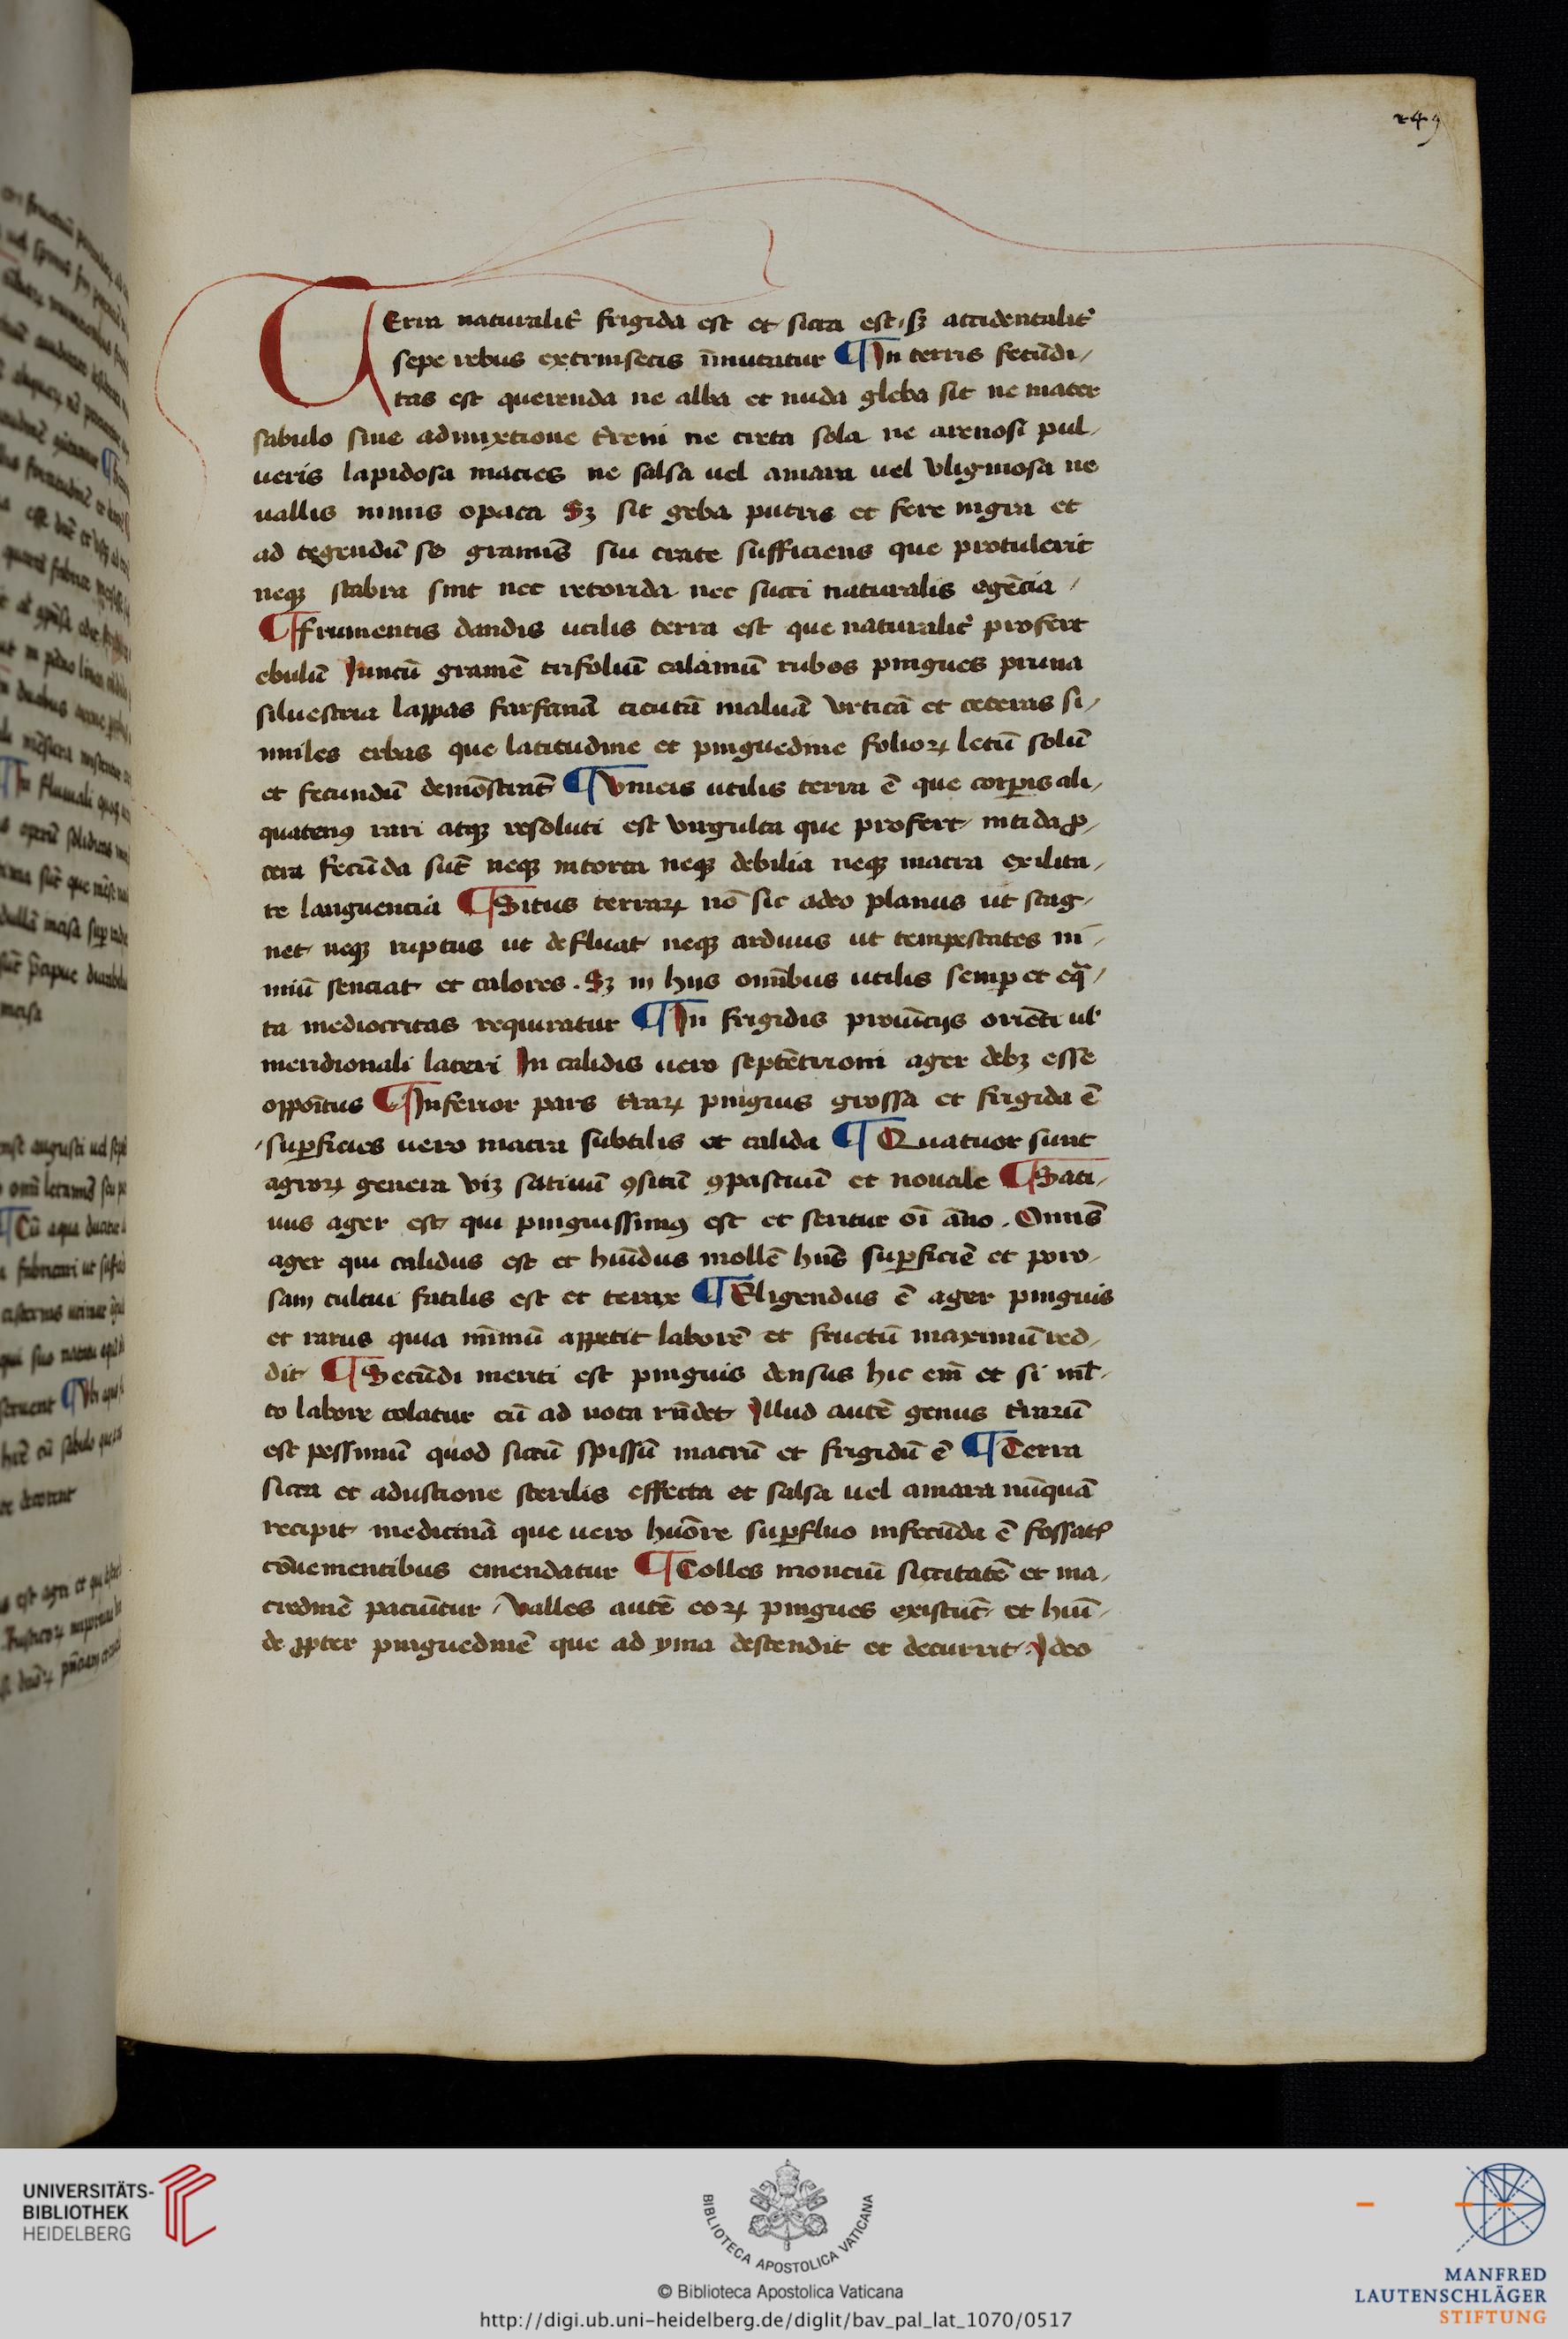 249
TErra naturalit᷑ frigida est et sicca est sꝫ accidentalit᷑
sepe rebus extrinsecis īmutatur ¶ In terris fecūdi/
tas est querenda ne alba et nuda gleba sit ne macer
sabulo sine admixtione t̄reni ne creta sola ne arenosi pul/
ueris lapidosa macies ne salsa uel amara uel vliginosa ne
uallis nimis opaca Sꝫ sit geba putris et fere nigra et
ad tegendū se graminē sui crate sufficiens que protulerit
neqꝫ scabra sint nec retorrida nec succi naturalis egēcia /
¶ ffrumentis dandis utilis terra est que naturalit᷑ profert
ebulū Juncū gramē trifoliū calamū rubos pingues pruna
siluestria lappas farfanā cicutā maluā vrticā et ceteras si/
miles erbas que latitudine et pinguedine folioꝝ letū solū
et fecundū demōstrāt ¶ Vineis utilis terra ē que corꝑis ali/
quatenꝰ rari atqꝫ resoluti est virgulta que profert nitida ꝓ/
cera fecūda sūt neqꝫ intorta neqꝫ debilia neqꝫ macra exilita/
te languencia ¶ Situs terraꝝ nō sit adeo planus ut stag/
net neqꝫ ruptus ut defluat neqꝫ arduus ut tempestates ni/
miū senciat et calores . Sꝫ in hijs omībus utilis semꝑ et eqᷓ/
ta mediocritas requiratur ¶ In frigidis prouīcijs oriēti ul᷑
meridionali lateri In calidis uero septētrioni ager debꝫ esse
oppoītus ¶ Inferior pars t̄raꝝ pinguis grossa et frigida ē
suꝑficies uero macra subtilis et calida ¶ Quatuor sunt
agroꝝ genera viꝫ satiuū ꝯsitū ꝯpascuū et nouale ¶ Sati/
uus ager est qui pinguissimꝰ est et seritur oī āno . Omīs
ager qui calidus est et hūidus mollē hn̄s suꝑficiē et poro/
sam cultui facilis est et ferax ¶ Eligendus ē ager pinguis
et rarus quia mīmū appetit laborē et fructū maximū red/
dit ¶ Secūdi meriti est pinguis densus hic em̄ et si ml̄/
to labore colatur cū ad uota rn̄det Illud autē genus t̄rarū
est pessimū quod siccū spissū macrū et frigidū ē ¶ Terra
sicca et adustione sterilis effecta et salsa uel amara nūquā
recipit medicinā que uero huōre suꝑfluo infecūda ē fossatꝭ
cōuenientibus emendatur ¶ Colles monciū siccitatē et ma/
credinē paciūtur / Valles autē eoꝝ pingues existūt et hūi/
de ꝓpter pinguedinē que ad yma descendit et decurrit . Ideo
UNIVERSITÄTS-
BIBLIOTHEK
HEIDELBERG
BIBLIOTECA APOSTOLICA VATICANA
© Biblioteca Apostolica Vaticana
http://digi.ub.uni-heidelberg.de/diglit/bav_pal_lat_1070/0517
MANFRED
LAUTENSCHLÄGER
STIFTUNG